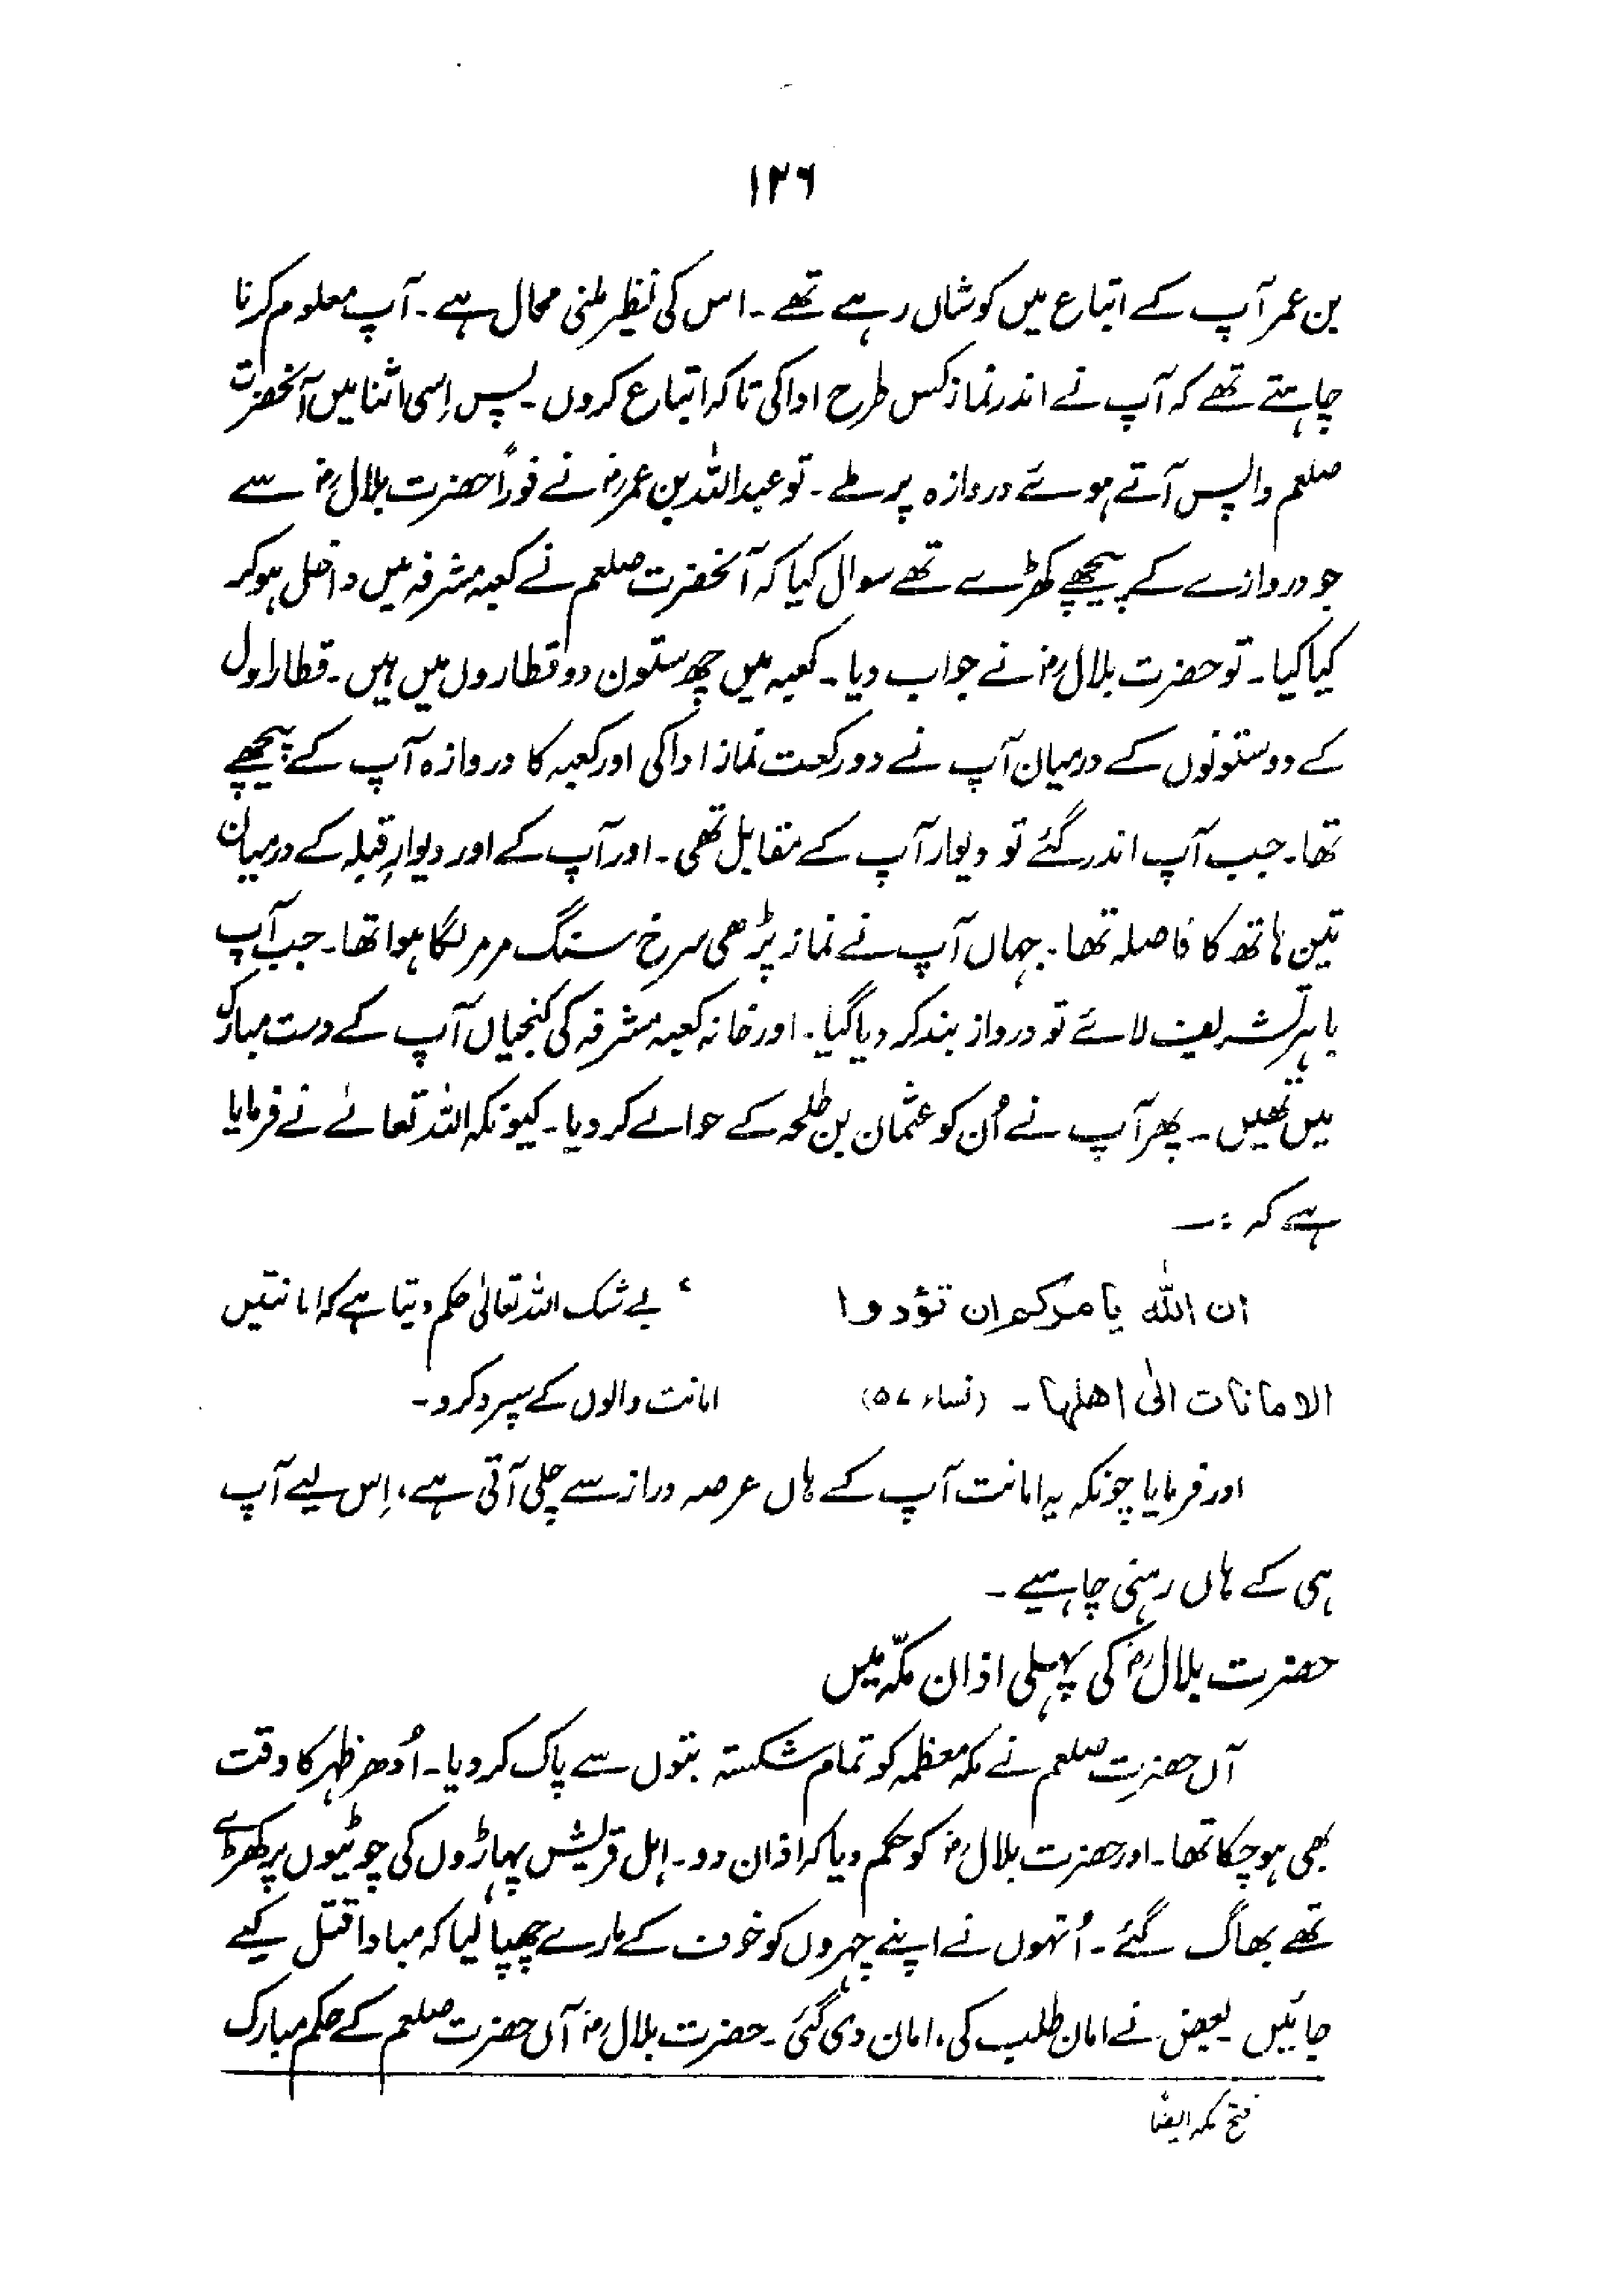 ۱۲۶
بن عمر آپ کے اتباع میں کوشاں رہے تھے ۔ اس کی نظیر ملنی محال ہے ۔ آپ معلوم کرنا
چاہتے تھے کہ آپ نے اندر نماز کس طرح ادا کی تاکہ اتباع کروں ۔ پس اِسی اثنا میں آنحضرت
صلعم واپس آتے ہوئے دروازہ پر ملے ۔ تو عبداللہ بن عمرؓ نے فوراً حضرت بلالؓ سے
جو دروازے کے پیچھے کھڑے تھے سوال کیا کہ آنحضرت صلعم نے کعبہ مشرفہ میں داخل ہو کر
کیا کیا ۔ تو حضرت بلالؓ نے جواب دیا ۔ کعبہ میں چھ ستون دو قطاروں میں ہیں ۔ قطار اول
کے دو ستونوں کے درمیان آپ نے دو رکعت نماز ادا کی اور کعبہ کا دروازہ آپ کے پیچھے
تھا ۔ جب آپ اندر گئے تو دیوار آپ کے مقابل تھی ۔ اور آپ کے اور دیوارِ قبلہ کے درمیان
تین ہاتھ کا فاصلہ تھا ۔ جہاں آپ نے نماز پڑھی سرخ سنگ مرمر لگا ہوا تھا ۔ جب آپ
باہر تشریف لائے تو درواز بند کر دیا گیا ۔ اور خانہ کعبہ مشرفہ کی کنجیاں آپ کے دست مبارک
میں تھیں ۔ پھر آپ نے اُن کو عثمان بن طلحہ کے حوالے کر دیا ۔ کیونکہ اللہ تعالےٰ نے فرمایا
ہے کہ :۔
ان اللّٰہ یامرکم ان تؤدوا ‘ بے شک اللہ تعالیٰ حکم دیتا ہے کہ امانتیں
الامانات الیٰ اھلہا ۔ (نساء ۵۷) امانت والوں کے سپرد کرو ۔
اور فرمایا چونکہ یہ امانت آپ کے ہاں عرصہ دراز سے چلی آتی ہے ، اِس لیے آپ
ہی کے ہاں رہنی چاہیے ۔
حضرت بلالؓ کی پہلی اذان مکّہ میں
آں حضرتِ صلعم نے مکہ معظمہ کو تمام شکستہ بتوں سے پاک کر دیا ۔ اُدھر ظہر کا وقت
بھی ہو چکا تھا ۔ اور حضرت بلالؓ کو حکم دیا کہ اذان دو ۔ اہل قریش پہاڑوں کی چوٹیوں پر کھڑے
تھے بھاگ گئے ۔ اُنہوں نے اپنے چہروں کو خوف کے مارے چھپا لیا کہ مبادا قتل کیے
جائیں بعض نے امان طلب کی ، امان دی گئی ۔ حضرت بلالؓ آں حضرت صلعم کے حکم مبارک
فتح مکہ ایضاً